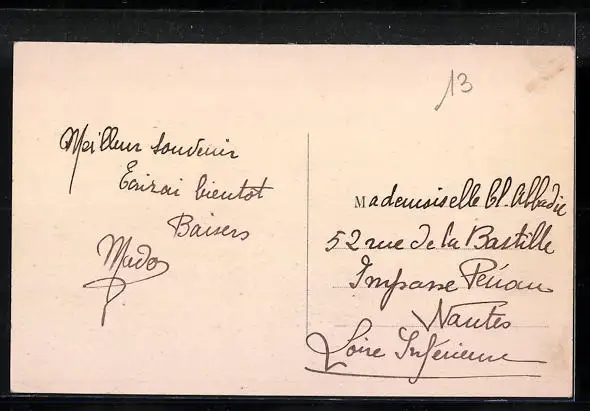 13
Meilleur souvenir
Ecrirai bientot
Baisers
Mado
Mademoiselle Cl. Abbadie
52 rue de la Bastille
Impasse
Nantes
Loire Inférieure